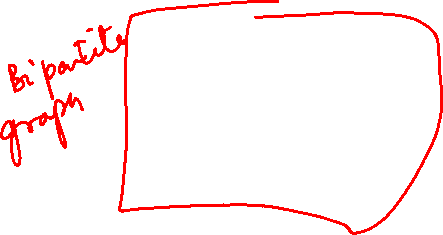 Bipartite
graph